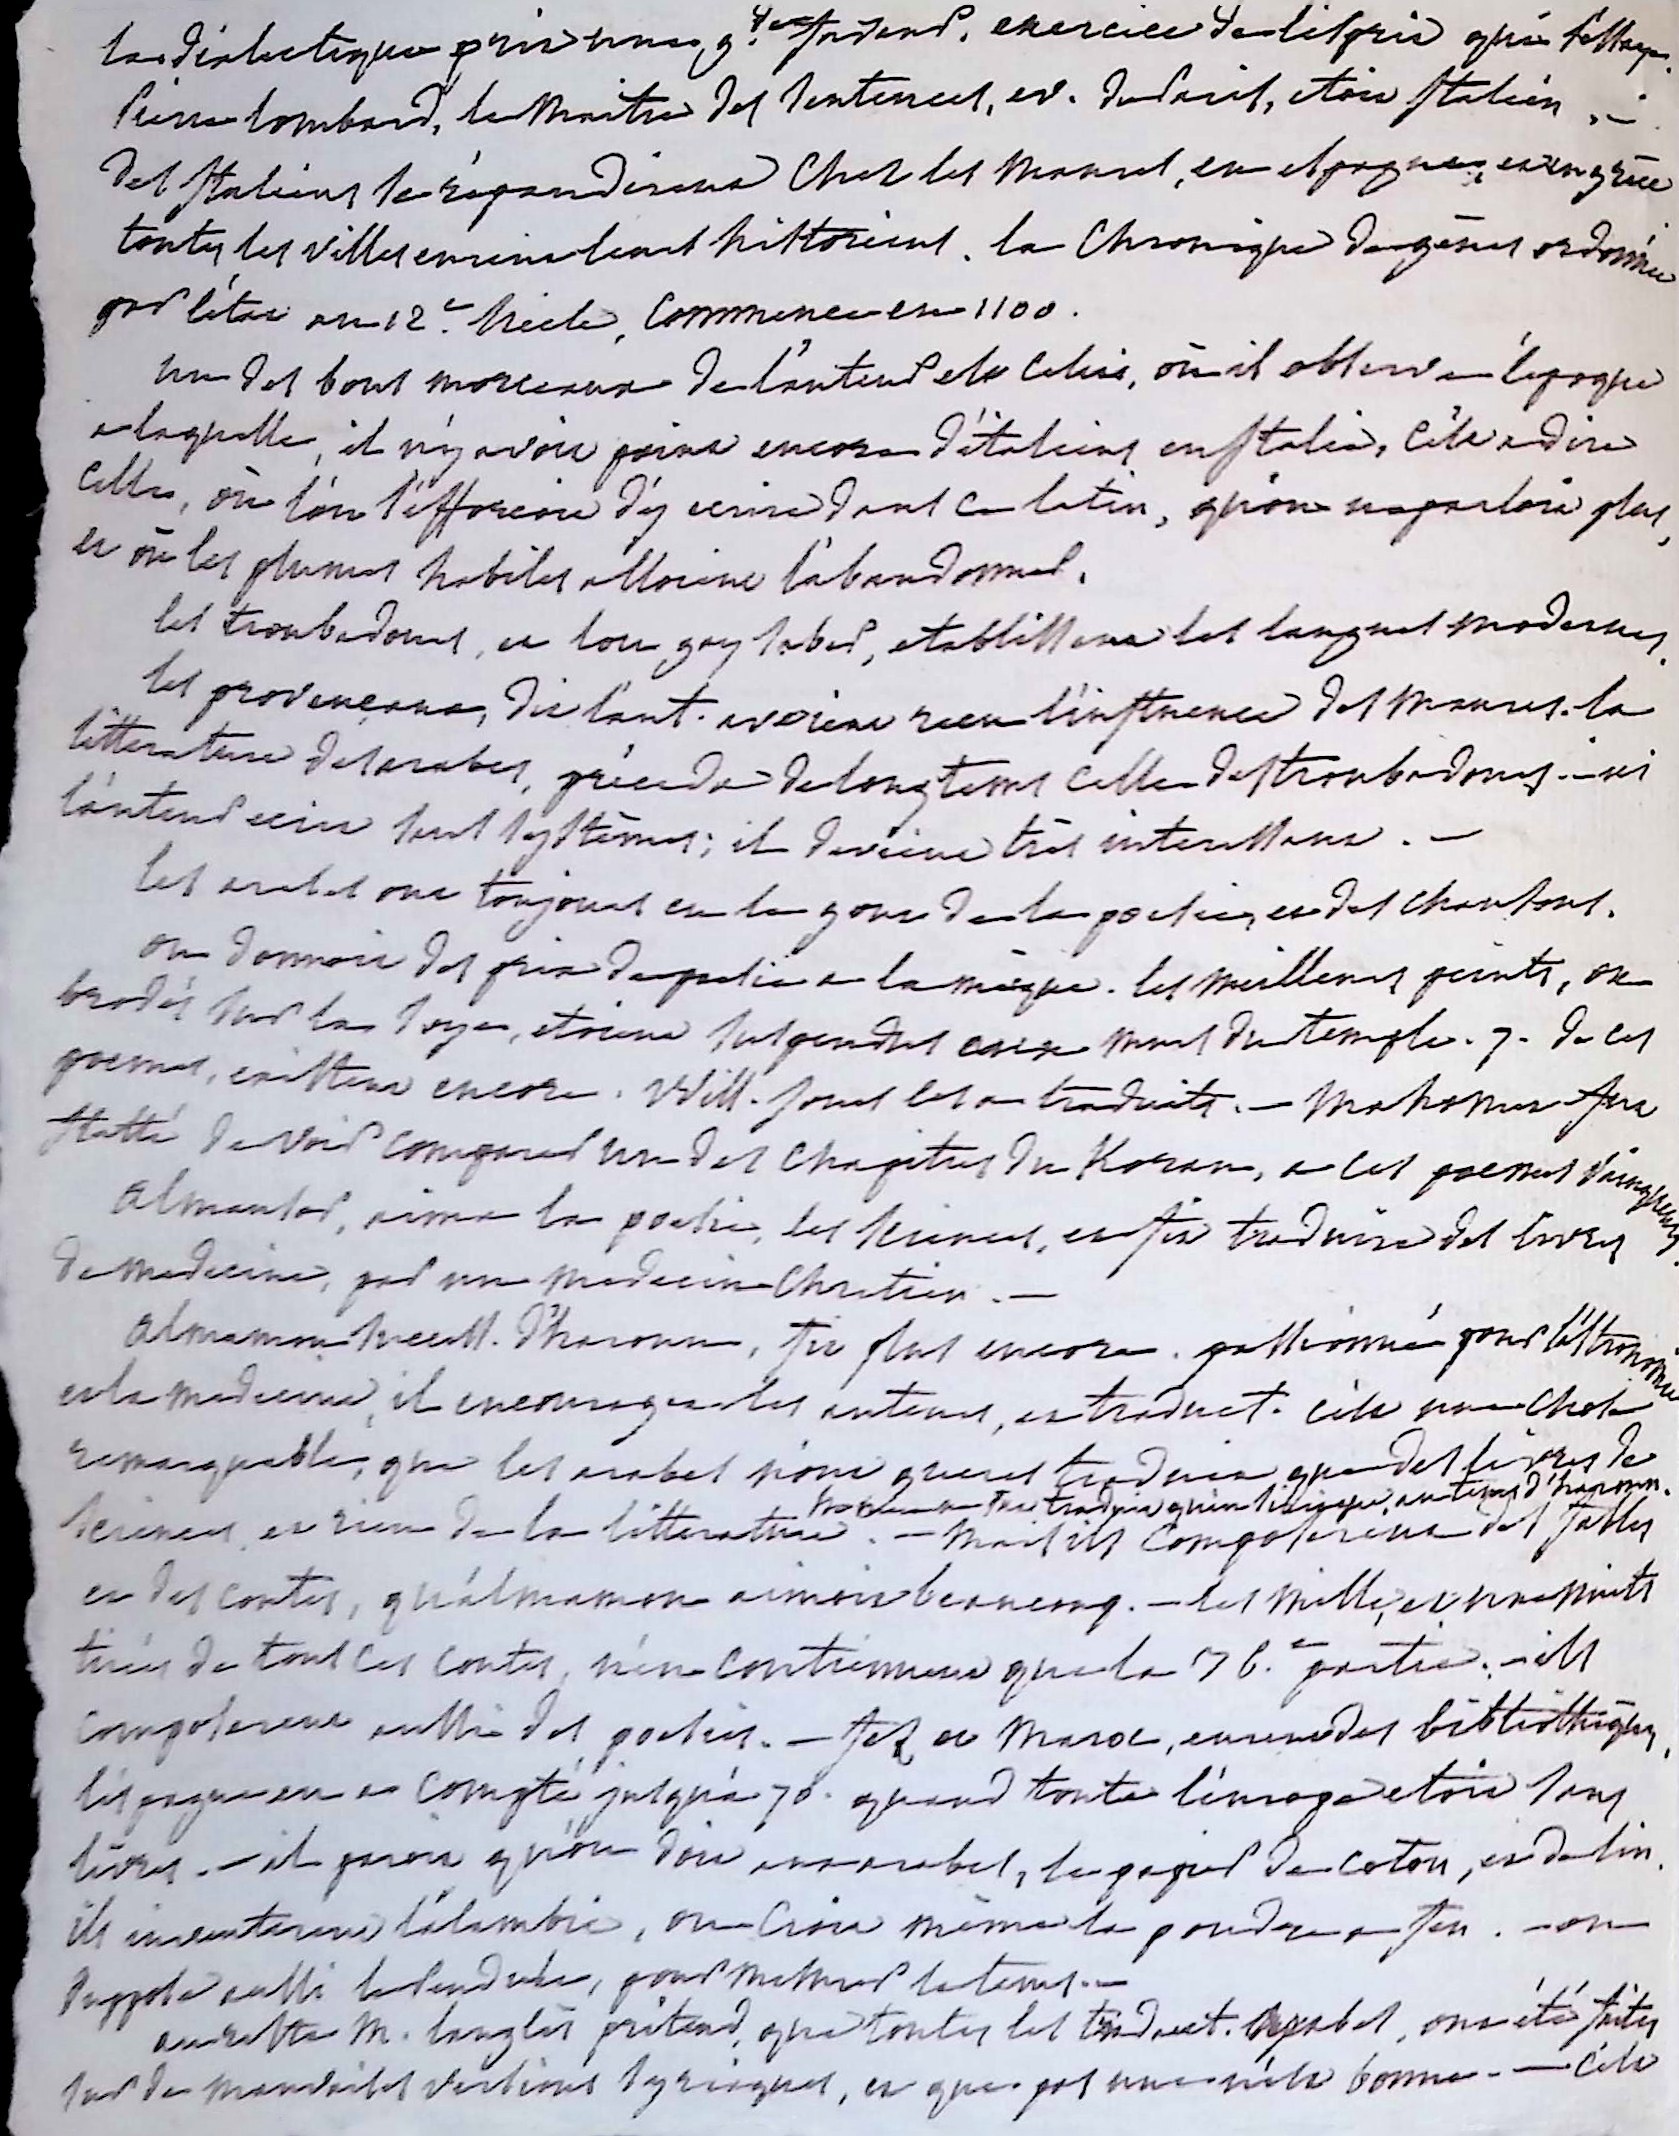 la dialectique prit une gde exercice de l'esprit qui
Pierre Lombard, le Maitre des Sentences, ev. de Paris, etoit Italien, —
des Italiens se répandirent chez les Maures, en espagne, et en grèce
toutes les villes eurent leurs historiens. la Chronique de gènes ordonnée
par l'état au 12e. siecle, commence en 1100.
un des bons morceaux de l'auteur est celui, où il observe l'epoque
a laquelle, il n'y avoit point encore d'italiens en Italie, c'est a dire
celle, où l'on s'efforcoit d'y ecrire dans ce latin, qu'on ne parloit plus,
et où les plumes habiles alloient l'abandonner.
les troubadours, et lou gay saber, etablissent les langues modernes.
les provençaux, dit l'aut. avoient recu l'influence des Maures. la
litterature des arabes, préceda de longtems celle des troubadours. — ici
l'auteur ecrit sans systèmes; il devient très interessant. —
les arabes ont toujours eu le gout de la poesie, et des chansons.
on donnoit des prix de poesie a la mèque. les meilleurs peints, ou
brodés sur la soye, etoient suspendus aux murs du temple. 7. de ces
poemes, existent encore. Will. Jones les a traduits. — Mahomet fut
flatté de voir comparer un des chapitres du Koran, a ces poemes vainqueurs.
Almansor, aima la poesie, les sciences, et fit traduire des livres
de medecine, par un medecin Chretien. —
Almamon success. d'haroun, fit plus encore. passionné pour l'astronomie
et la medecine, il encouragea les auteurs, et traduct. c'est une chose
remarquable, que les arabes n'ont gueres traduit que des livres de
traduit qu'en siriaque, au tems d'haroun.
sciences et rien de la litterature. — Mais ils composerent des fables
et des contes, qu'almamon aimoit beaucoup. — les mille et une nuits
tirées de tous ces contes, n'en contiennent que la 36.e partie. — ils
composerent aussi des poesies. — fez et Maroc, eurent des bibliothèques,
l'espagne en a compté jusqu'a 70. quand toute l'europe etoit sans
livres. — il paroit qu'on doit aux arabes, le papier de coton, et de lin.
ils inventerent l'alambic, on croit même la poudre a feu. — on
suppose aussi le pendule, pour mesurer le tems. —
au reste M. langlès prétend, que toutes les traduct. arabes, ont été faites
sur de mauvaises versions syriaques, et que pas une n'est bonne. — c'est